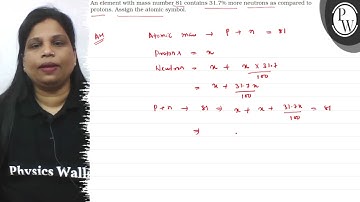 An element with mass number 81 contains 31.7% more neutrons as compared to
protons. Assign the atomic symbol.
PW
Atomic mass → p + n = 81
Protons = x
Neutron = x + x × 31.7 / 100
= x + 31.7x / 100
p + n → 81 ⇒ x + x + 31.7x / 100 = 81
⇒
Physics Wall